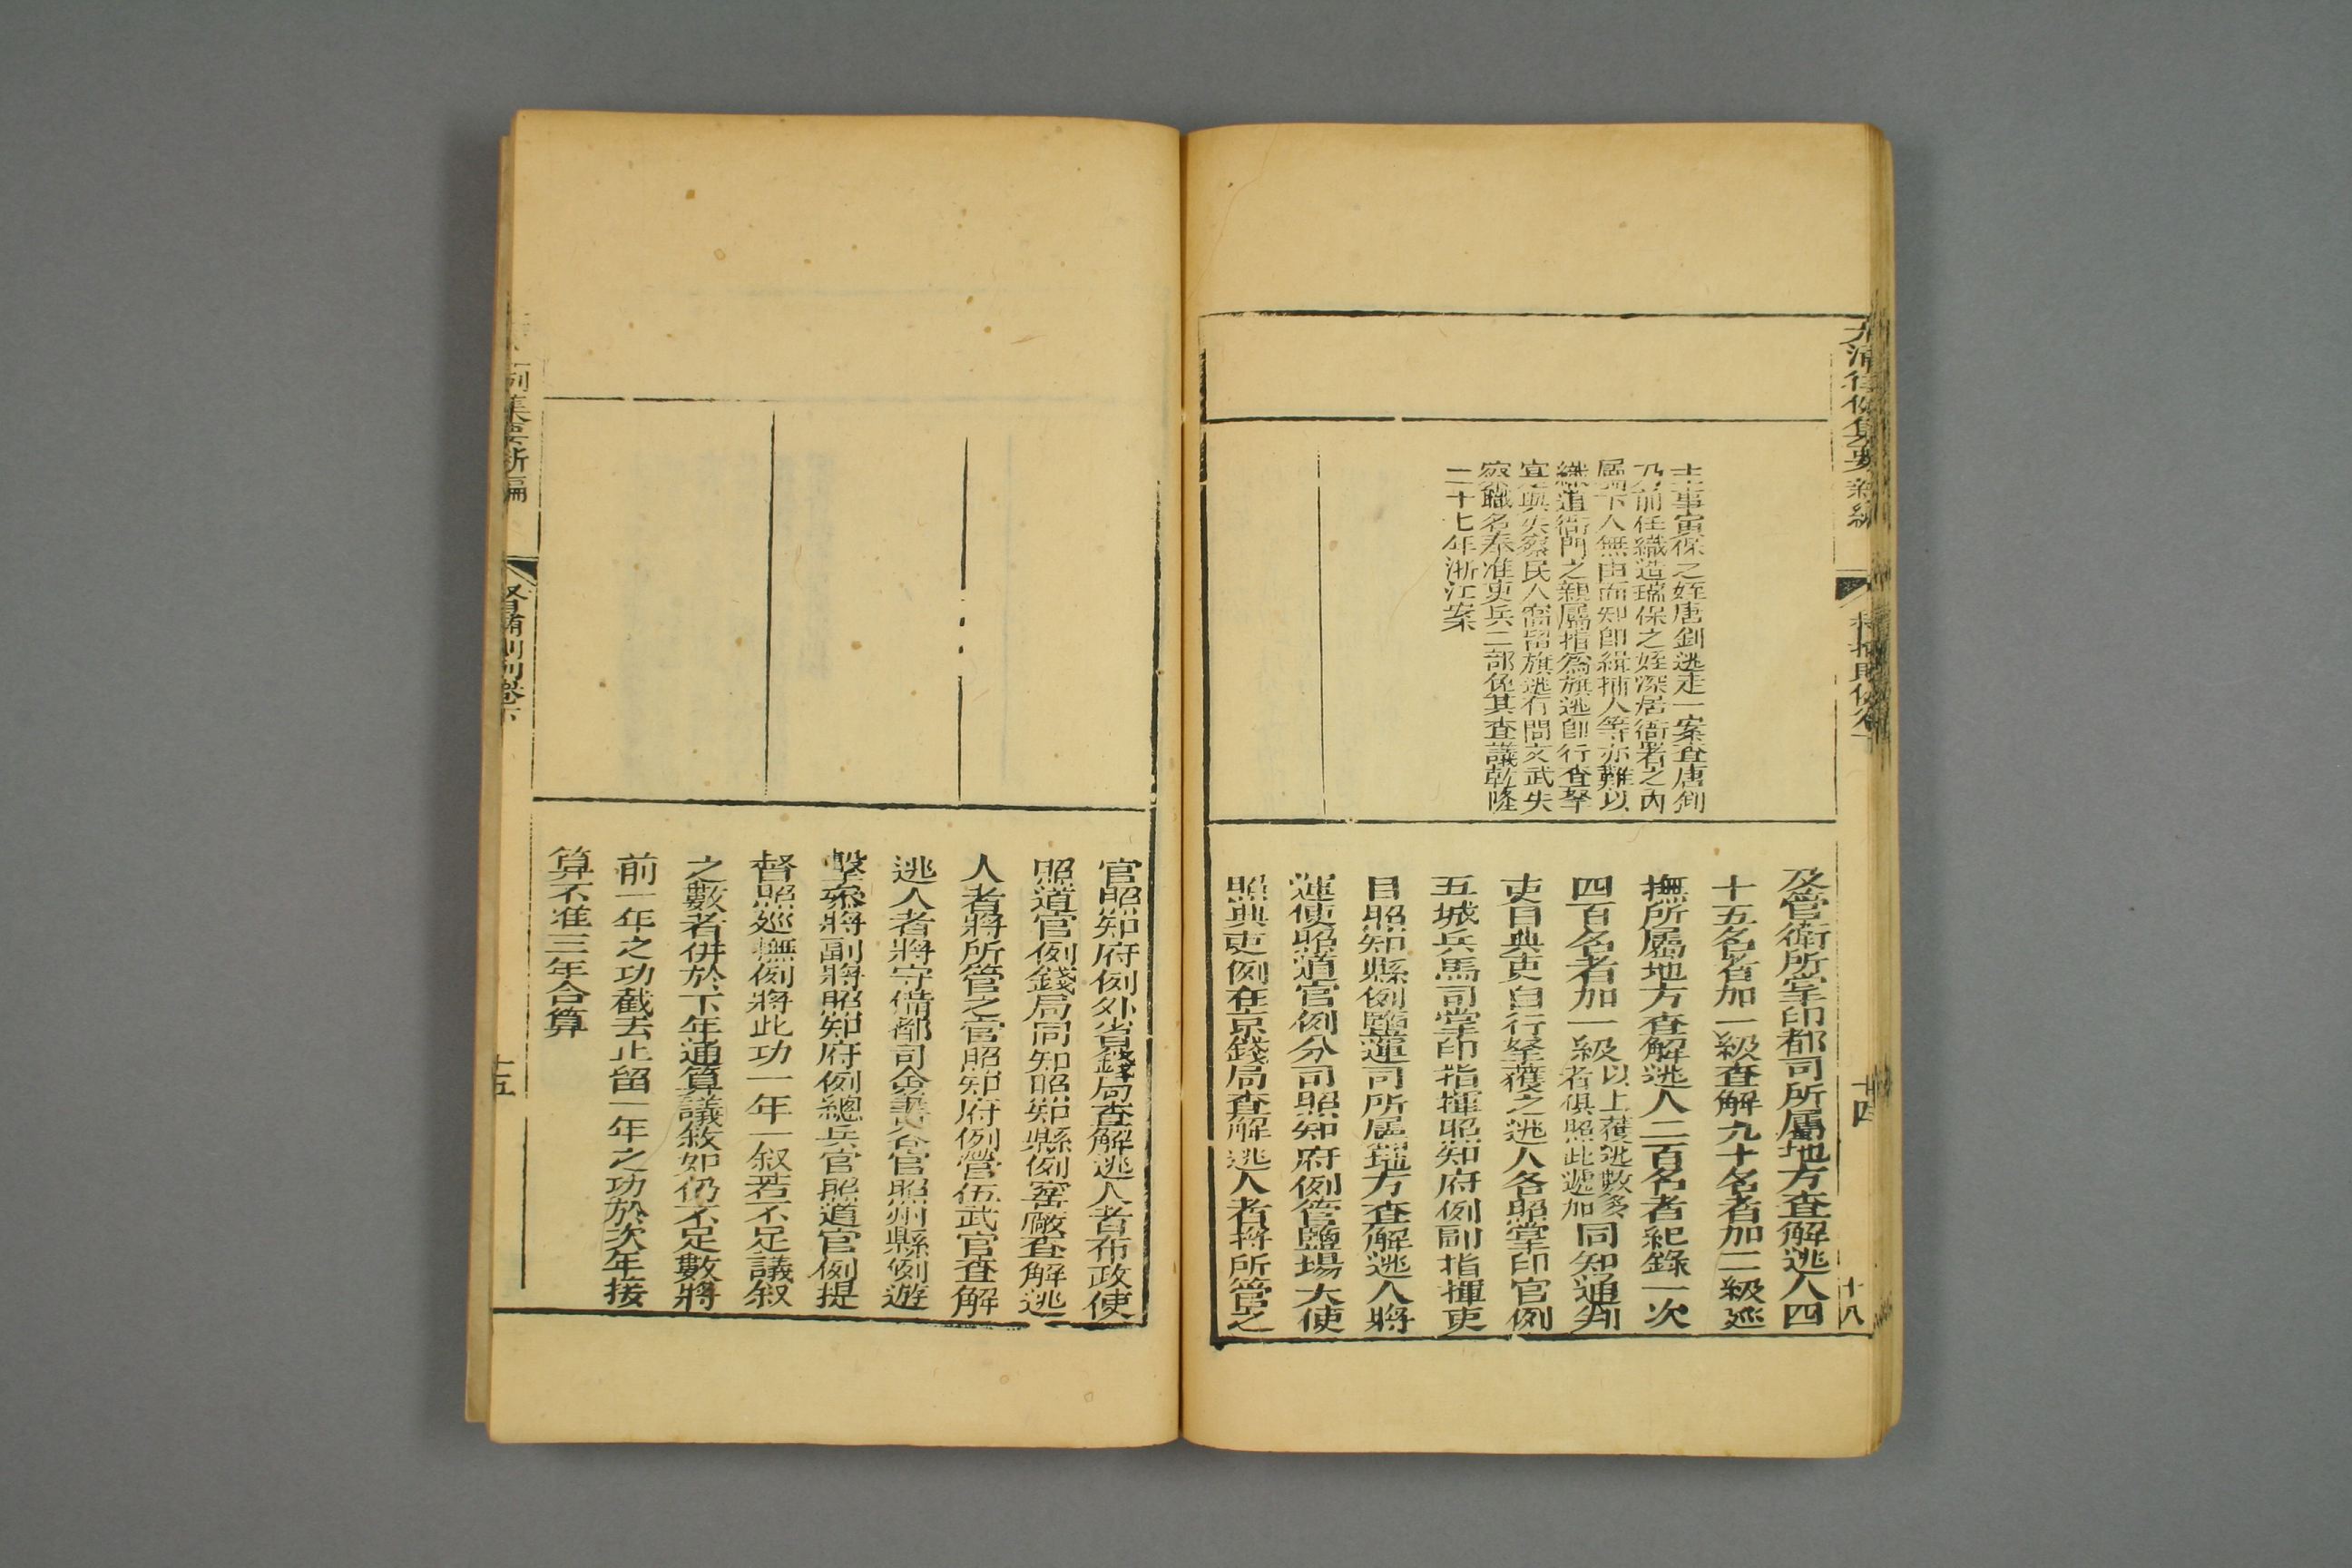 大清律例集要新編
十四
十八
主事寅保之姪唐釗逃走一案查唐釗
乃前任織造瑞保之姪深居衙署之內
屬下人無由而知卽緝捕人等亦難以
織造衙門之親屬指爲旗逃卽行查拏
宜與失察民人窩留旗逃有間文武失
察職名奉准吏兵二部免其查議乾隆
二十七年浙江案
及管衛所掌印都司所屬地方查解逃人四
十五名者加一級查解九十名者加二級巡
撫所屬地方查解逃人二百名者紀錄一次
四百名者加一級以上獲逃數多者俱照此遞加同知通判
吏目典吏自行拏獲之逃人各照掌印官例
五城兵馬司掌印指揮照知府例副指揮吏
目照知縣例鹽運司所屬地方查解逃人將
運使照道官例分司照知府例管鹽場大使
照典吏例在京錢局查解逃人者將所管之
官照知府例外省錢局查解逃人者布政使
照道官例錢局同知照知縣例窰廠查解逃
人者將所管之官照知府例營伍武官查解
逃人者將守備都司僉書各官照州縣例遊
擊叅將副將照知府例總兵官照道官例提
督照廵撫例將此功一年一叙若不足議叙
之數者併於下年通算議敘如仍不足數將
前一年之功截去止留一年之功於次年接
算不准三年合算
例集要新編
督捕則例卷下
十五